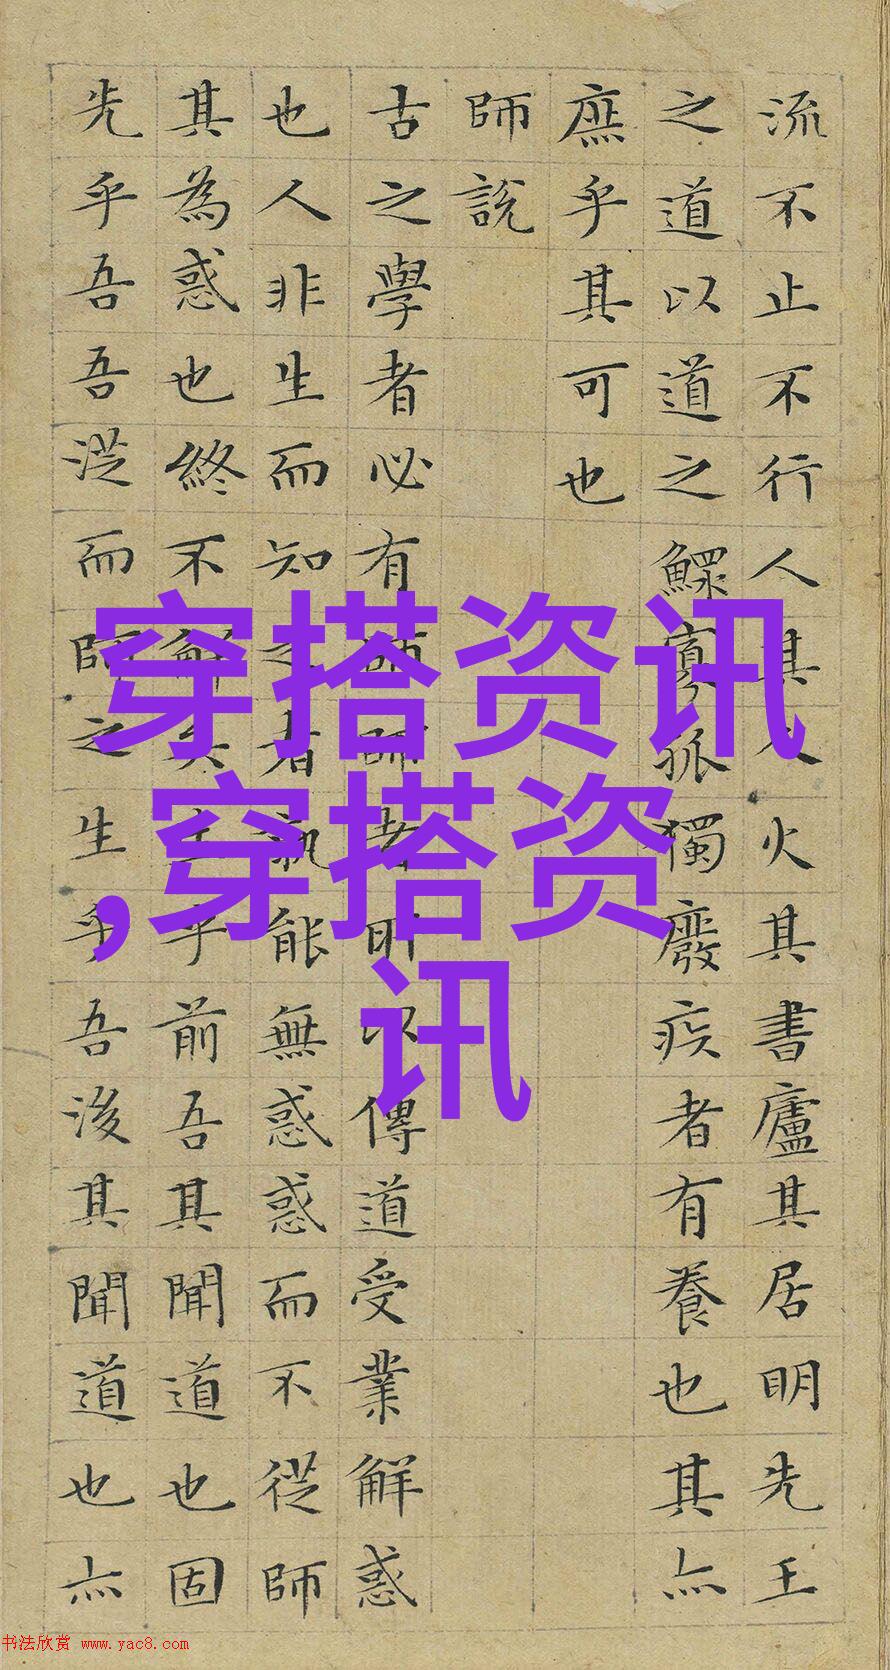 流不止不行人其人火其書廬其居明先王
之道以道之鰥寡孤獨廢疾者有養也其亦
庶乎其可也
師說
古之學者必有師師者所以傳道受業解惑
也人非生而知之者孰能無惑惑而不從師
其為惑也終不解矣生乎前吾其聞道也固
先乎吾吾從而師之生乎吾後其聞道也亦
穿搭资讯
,穿搭资
讯
书法欣赏 www.yac8.com